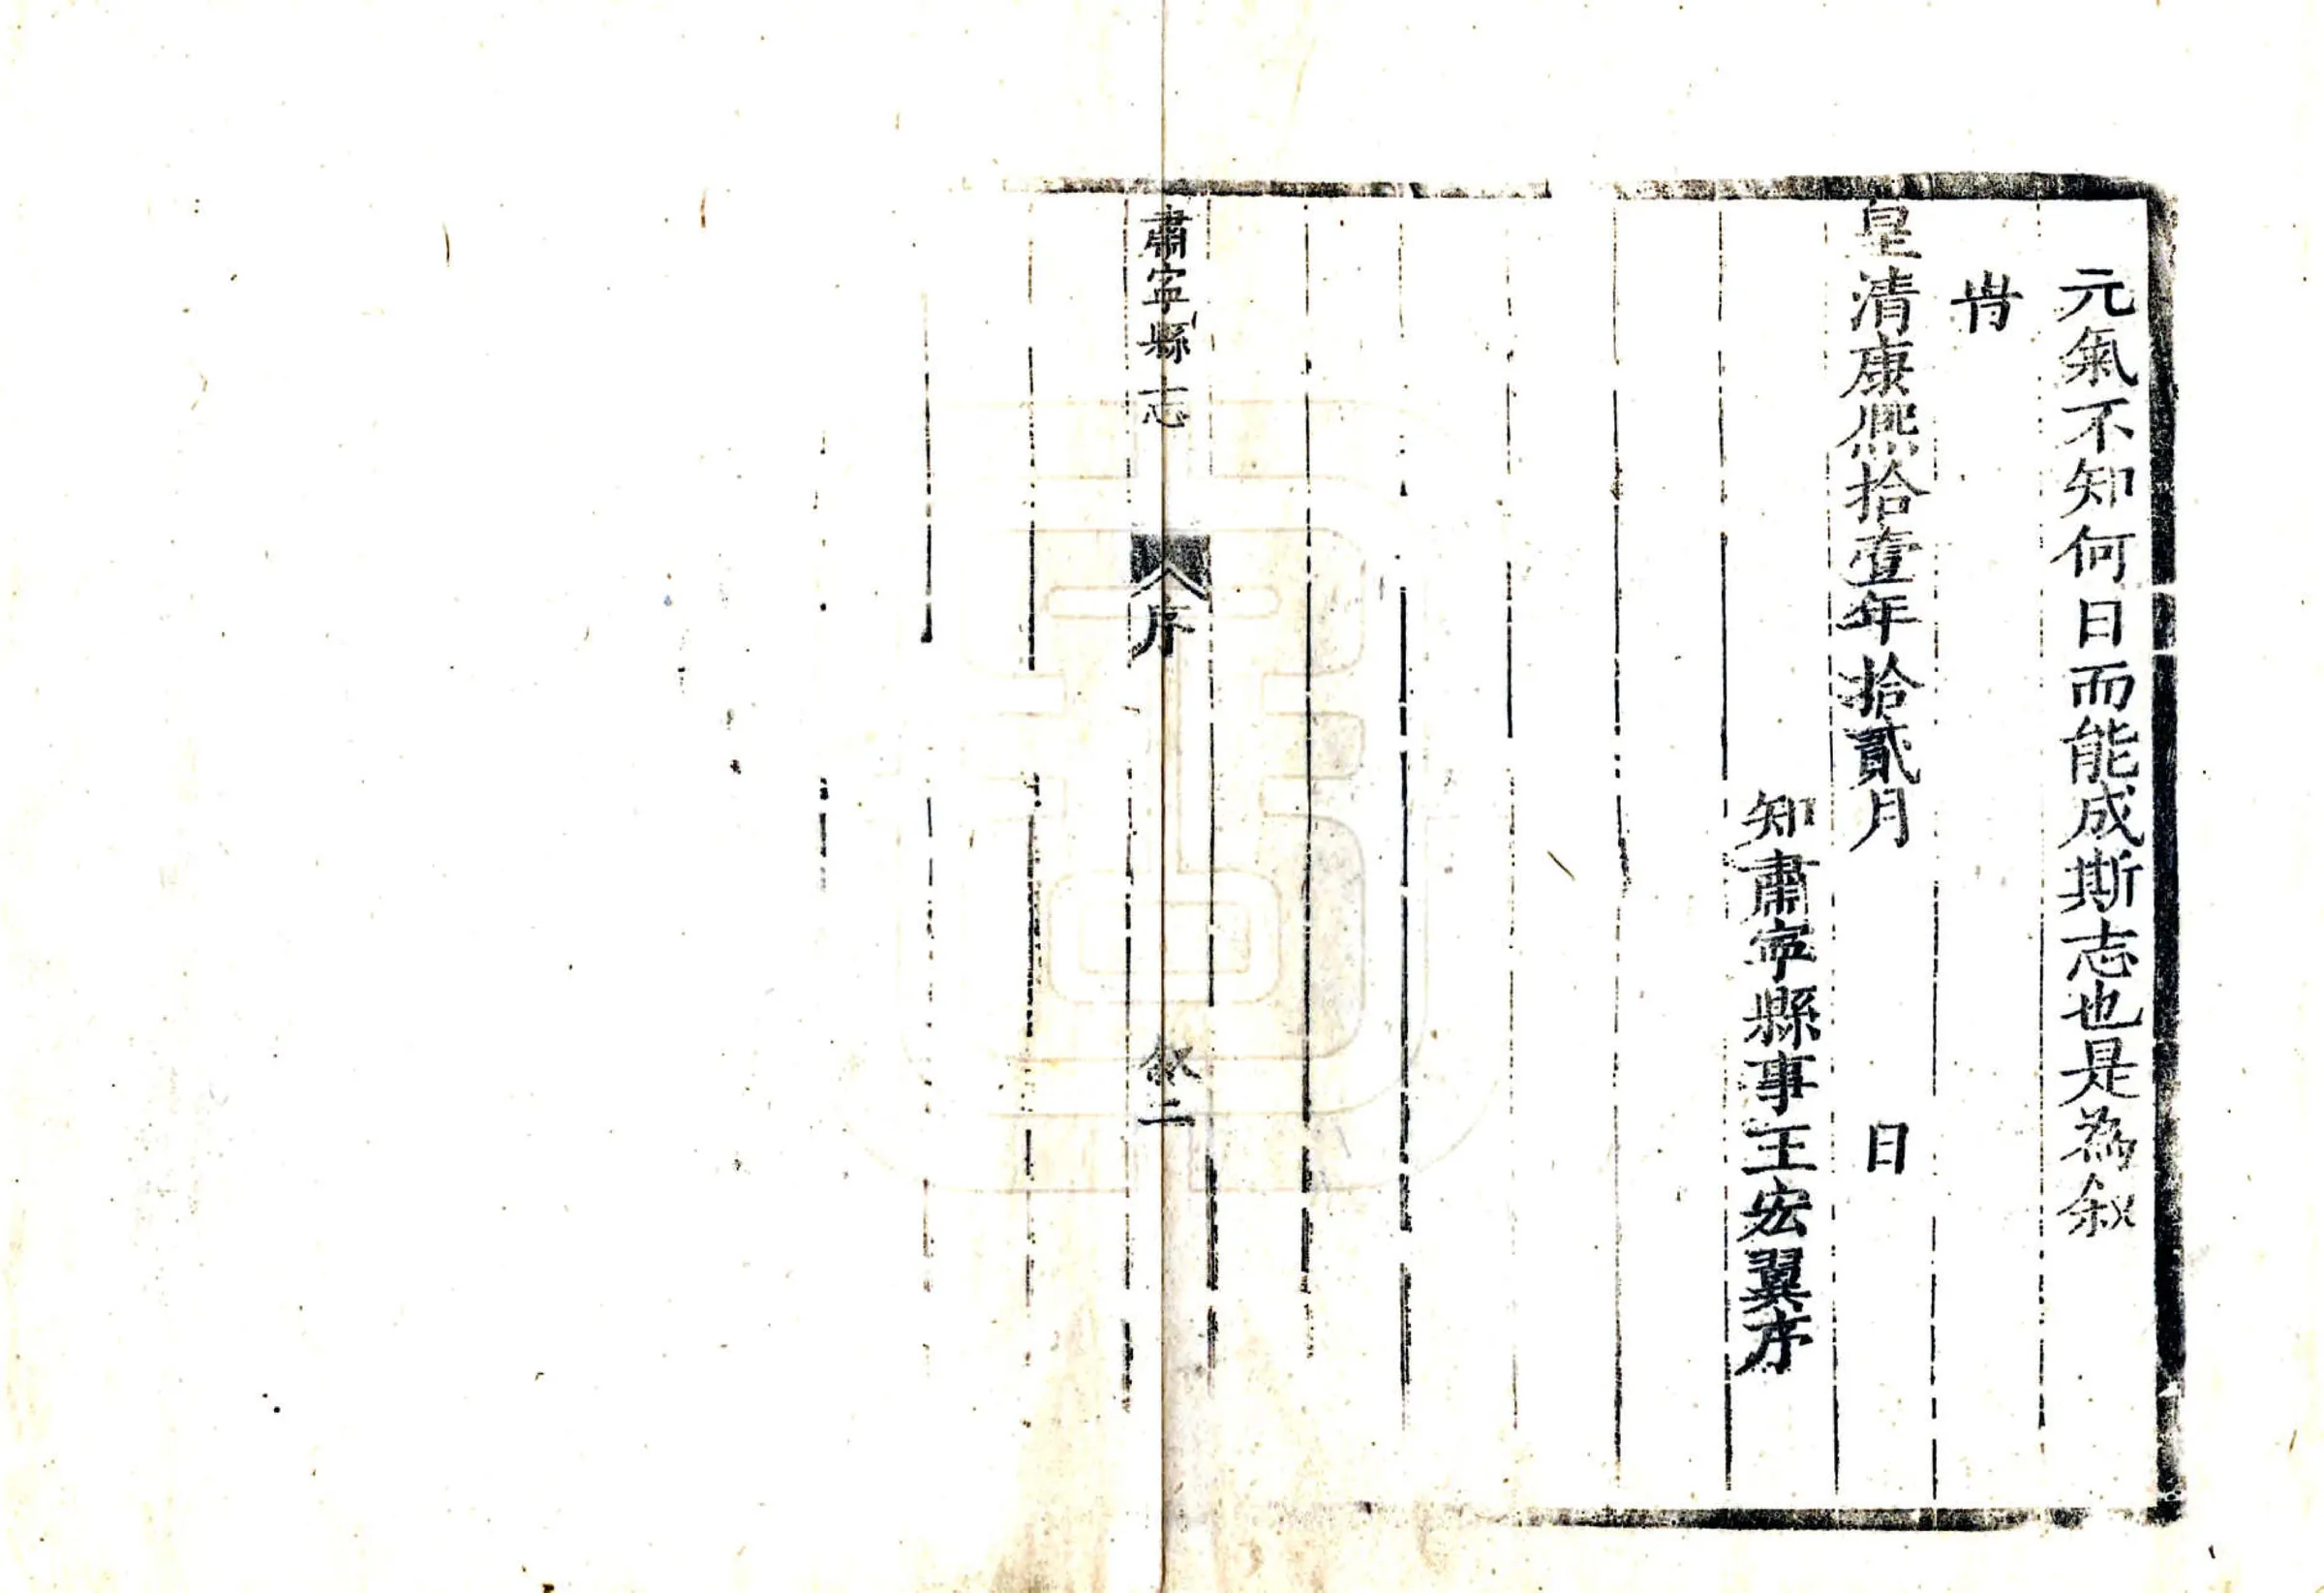 元氣不知何日而能成斯志也是為叙
旹
皇清康熈拾壹年拾貳月　日
知肅寧縣事王宏翼序
肅寧縣志　序　叙二